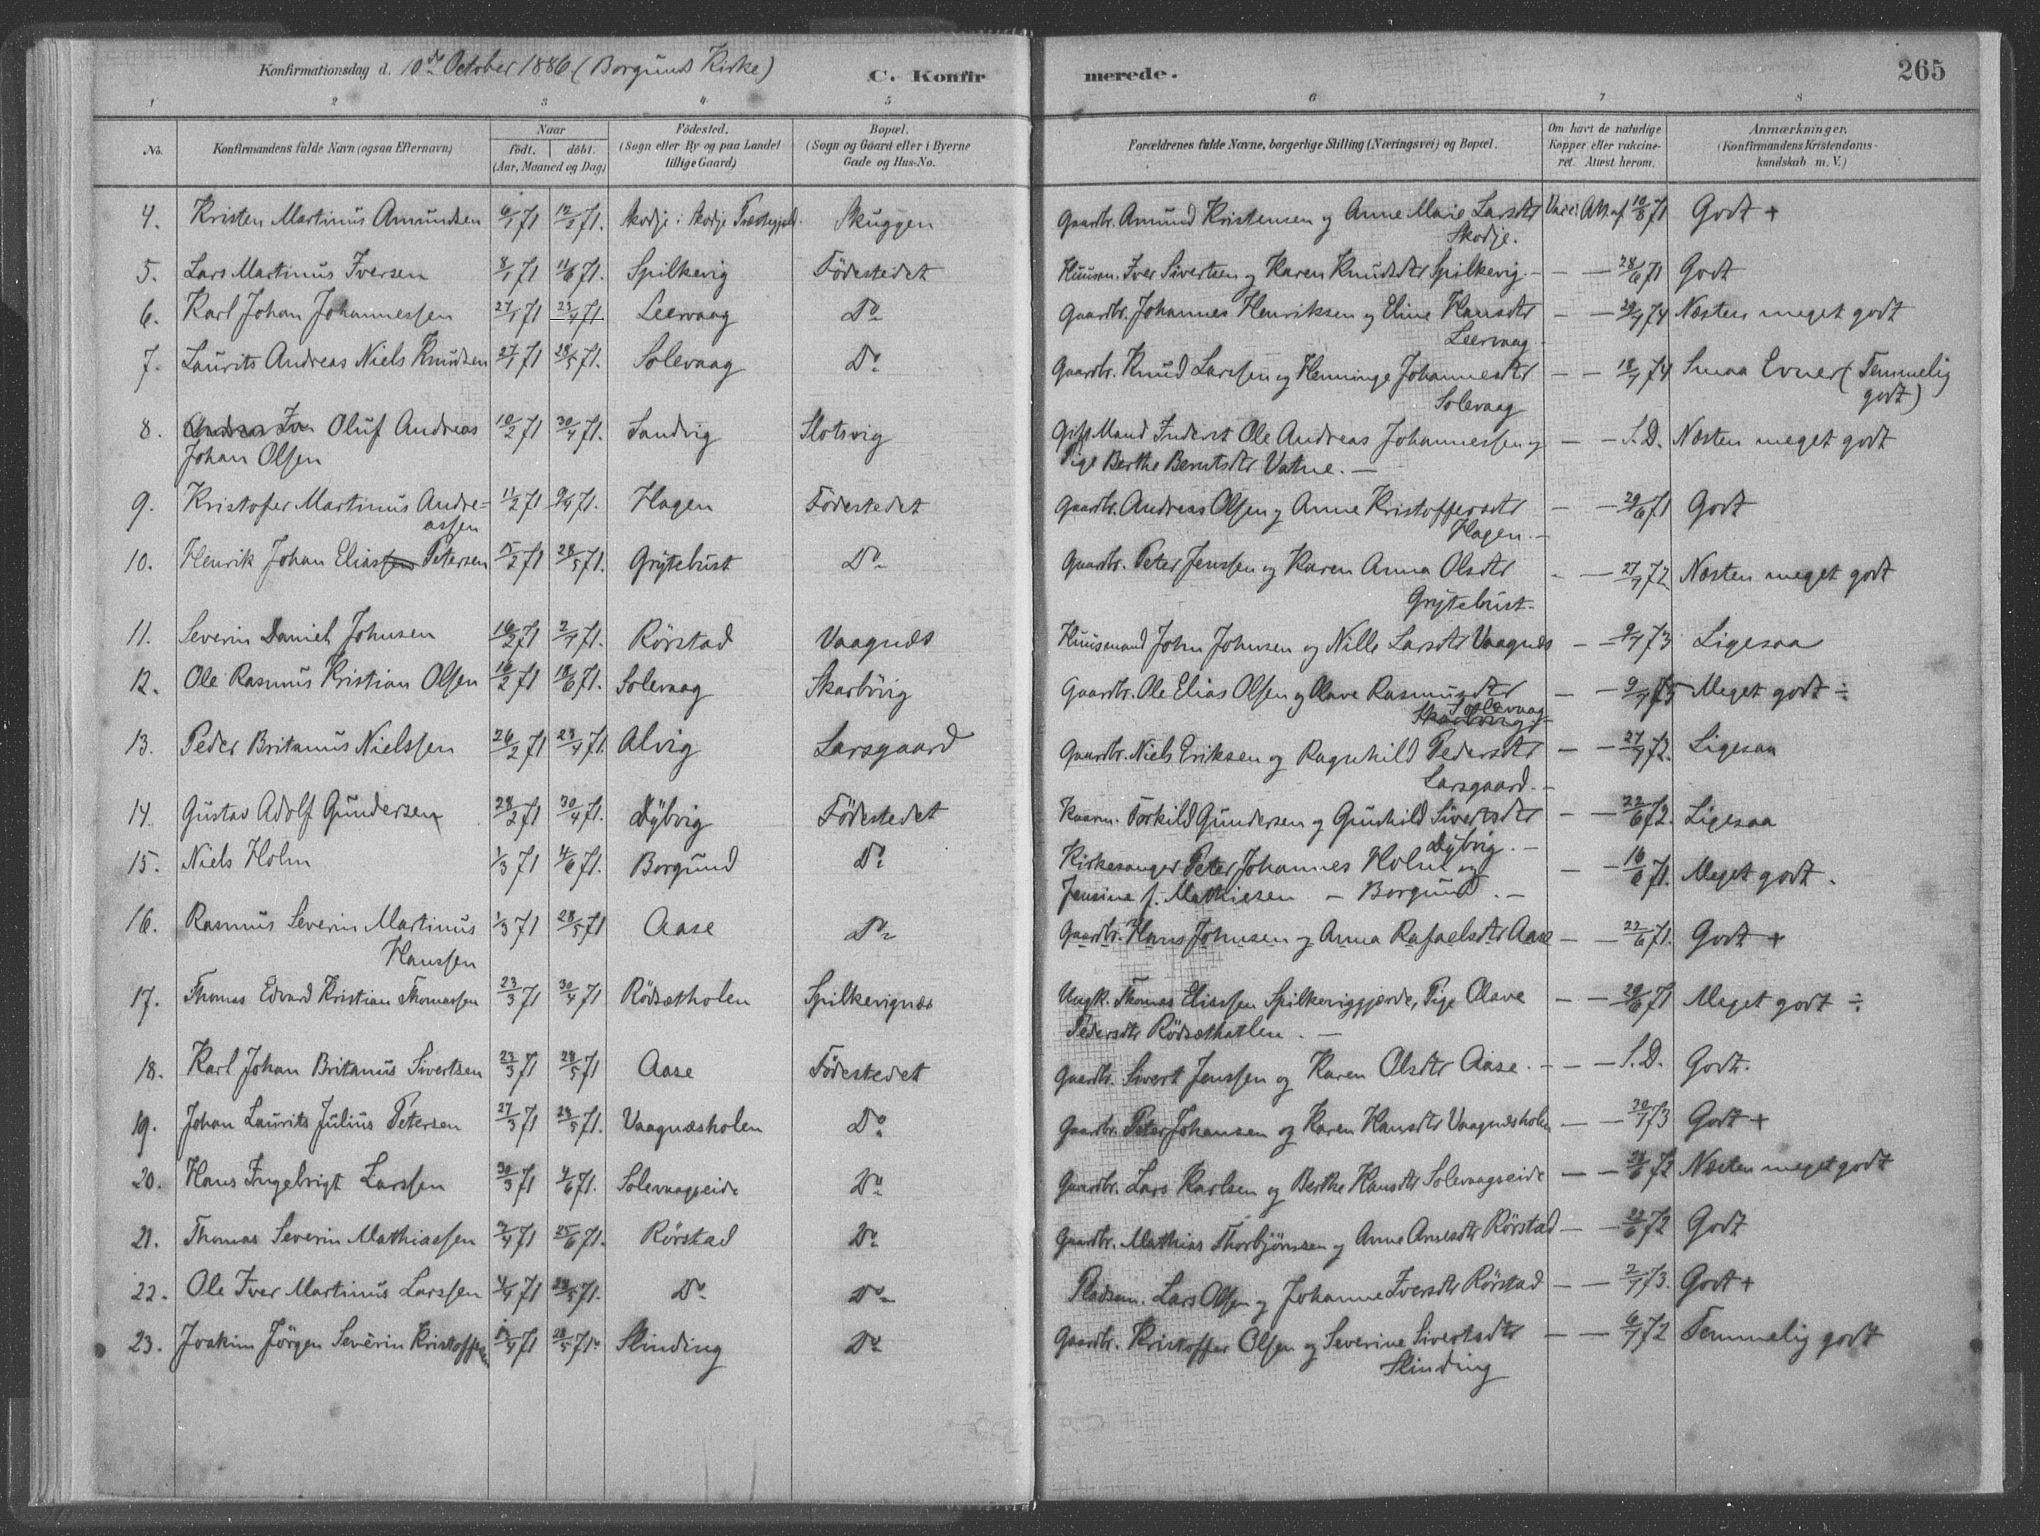 Konfirmationsdag d. 10de October 1886 (Borgund Kirke) C. Konfir merede. 265
1 2 3 4 5 6 7 8
No. Konfirmandens fulde Navn (ogsaa Efternavn) Naar Födested. Bopæl. Forældrenes fulde Navne, borgerlige Stilling (Næringsvei) og Bopæl. Om havt de naturlige Anmærkninger.
födt. döbt. (Sogn eller By og paa Landet (Sogn og Gaard eller i Byerne Kopper eller vakcine- (Konfirmandens Kristendoms-
(Aar, Maaned og Dag) tillige Gaard) Gade og Hus-No. ret. Attest herom. kundskab m. V.)
4. Kristen Martinus Amundsen 6/1 71 12/2 71. Skodje i Skodje Præstegjeld. Skuggen Gaardbr. Amund Kristensen og Anne Marie Larsdtr Vacci. Att. af 10/8 71 Godt +
Skodje.
5. Lars Martinus Iversen 8/1 71 11/6 71. Spilkevig Födestedet Huusm. Iver Sivertsen og Karen Knudsdtr Spilkevig - — — 28/6 71 Godt
6. Karl Johan Johannessen 21/1 71 23/4 71. Leervaag Do Gaardbr. Johannes Henriksen og Eline Hansdtr — — 29/9 74 Næsten meget godt
Leervaag
7. Laurits Andreas Niels Knudsen 27/1 71 28/5 71. Solevaag Do Gaardbr. Knud Larssen og Henninge Johannesdtr — — 18/9 74 Smaa Evner (Temmelig
Solevaag godt)
8. Oluf Andreas 10/2 71 30/4 71. Sandvig Slotsvig Gift Mand Inderst Ole Andreas Johannessen og — — S.D. Næsten meget godt
Johan Olsen Pige Berthe Berntsdtr Vatne. —
9. Kristofer Martinus Andre- 11/2 71 9/4 71. Hagen Födestedet Gaardbr. Andreas Olsen og Anne Kristoffersdtr — — 29/6 71 Godt
assen Hagen. —
10. Henrik Johan Eliassen Petersen 15/2 71 28/5 71. Grÿtebust Do Gaardbr. Peter Jenssen og Karen Anna Olsdtr - — 27/9 72 Næsten meget godt
Grÿtebust-
11. Severin Daniel Johnsen 16/2 71 2/4 71. Rörstad Vaagnæs Huusmand John Johnsen og Nille Larsdtr Vaagnæs — — 9/7 73 Ligesaa
12. Ole Rasmus Kristian Olsen 16/2 71 18/6 71. Solevaag Skarbövig Gaardbr. Ole Elias Olsen og Olave Rasmusdtr — — 9/7 75 Meget godt ÷
Solevaag
Skarbövig
13. Peder Britanus Nielssen 26/2 71 23/4 71. Alvig Larsgaard Gaardbr. Niels Eriksen og Ragnhild Pedersdtr — — 27/9 72. Ligesaa
Larsgaard. -
14. Gustav Adolf Gundersen 28/2 71 30/4 71. Dÿbvig Födestedet Torkild Gundersen og Gunhild Sivertsdtr — — 22/6 72. Ligesaa
Dÿbvig. —
15. Niels Holm 1/3 71 4/6 71. Borgund Do Kirkesanger Peter Johannes Holm og — — 16/6 71. Meget godt.
Jensine f. Mathiesen — Borgund. —
16. Rasmus Severin Martinus 1/3 71 28/5 71 Aase Do Gaardbr. Hans Johnsen og Anna Rafaelsdtr Aase — — 22/6 71. Godt +
Hanssen
17. Thomas Edvard Kristian Thomassen 23/3 71 30/4 71 Rödsætholen Spilkevignæs Ungk. Thomas Elissen Spilkeviggjærde, Pige Olave — — 29/6 71 Meget godt ÷
Pedersdtr Rödsæthatlen. —
18. Karl Johan Britanus Sivertsen 23/3 71 28/5 71 Aase Födestedet Gaardbr. Sivert Jenssen og Karen Olsdtr Aase. — — S.D. Godt.
19. Johan Laurits Julius Petersen 27/3 71 28/5 71. Vaagnæsholen Do Gaardbr. Peter Johansen og Karen Hansdtr Vaagnæsholen — — 30/7 73 Godt +
20. Hans Ingebrigt Larssen 30/3 71 4/6 71. Solevaagseide Do Gaardbr. Lars Karlsen og Berthe Hansdtr Solevaagseide — — 28/6 72 Næsten meget godt
21. Thomas Severin Mathiassen 2/4 71 25/6 71. Rörstad Do Gaardbr. Mathias Thorbjörnsen og Anne Arnesdtr Rörstad — — 22/6 72 Godt
22. Ole Iver Martinus Larssen 4/4 71 28/5 71. Do Do Pladsm. Lars Olsen og Johanne Iversdtr Rörstad — — 2/7 73. Godt +
23. Joakim Jörgen Severin Kristoffersen 12/4 71 28/5 71. Slinding Do Gaardbr. Kristoffer Olsen og Severine Sivertsdtr — — 6/7 72 Temmelig godt
Slinding